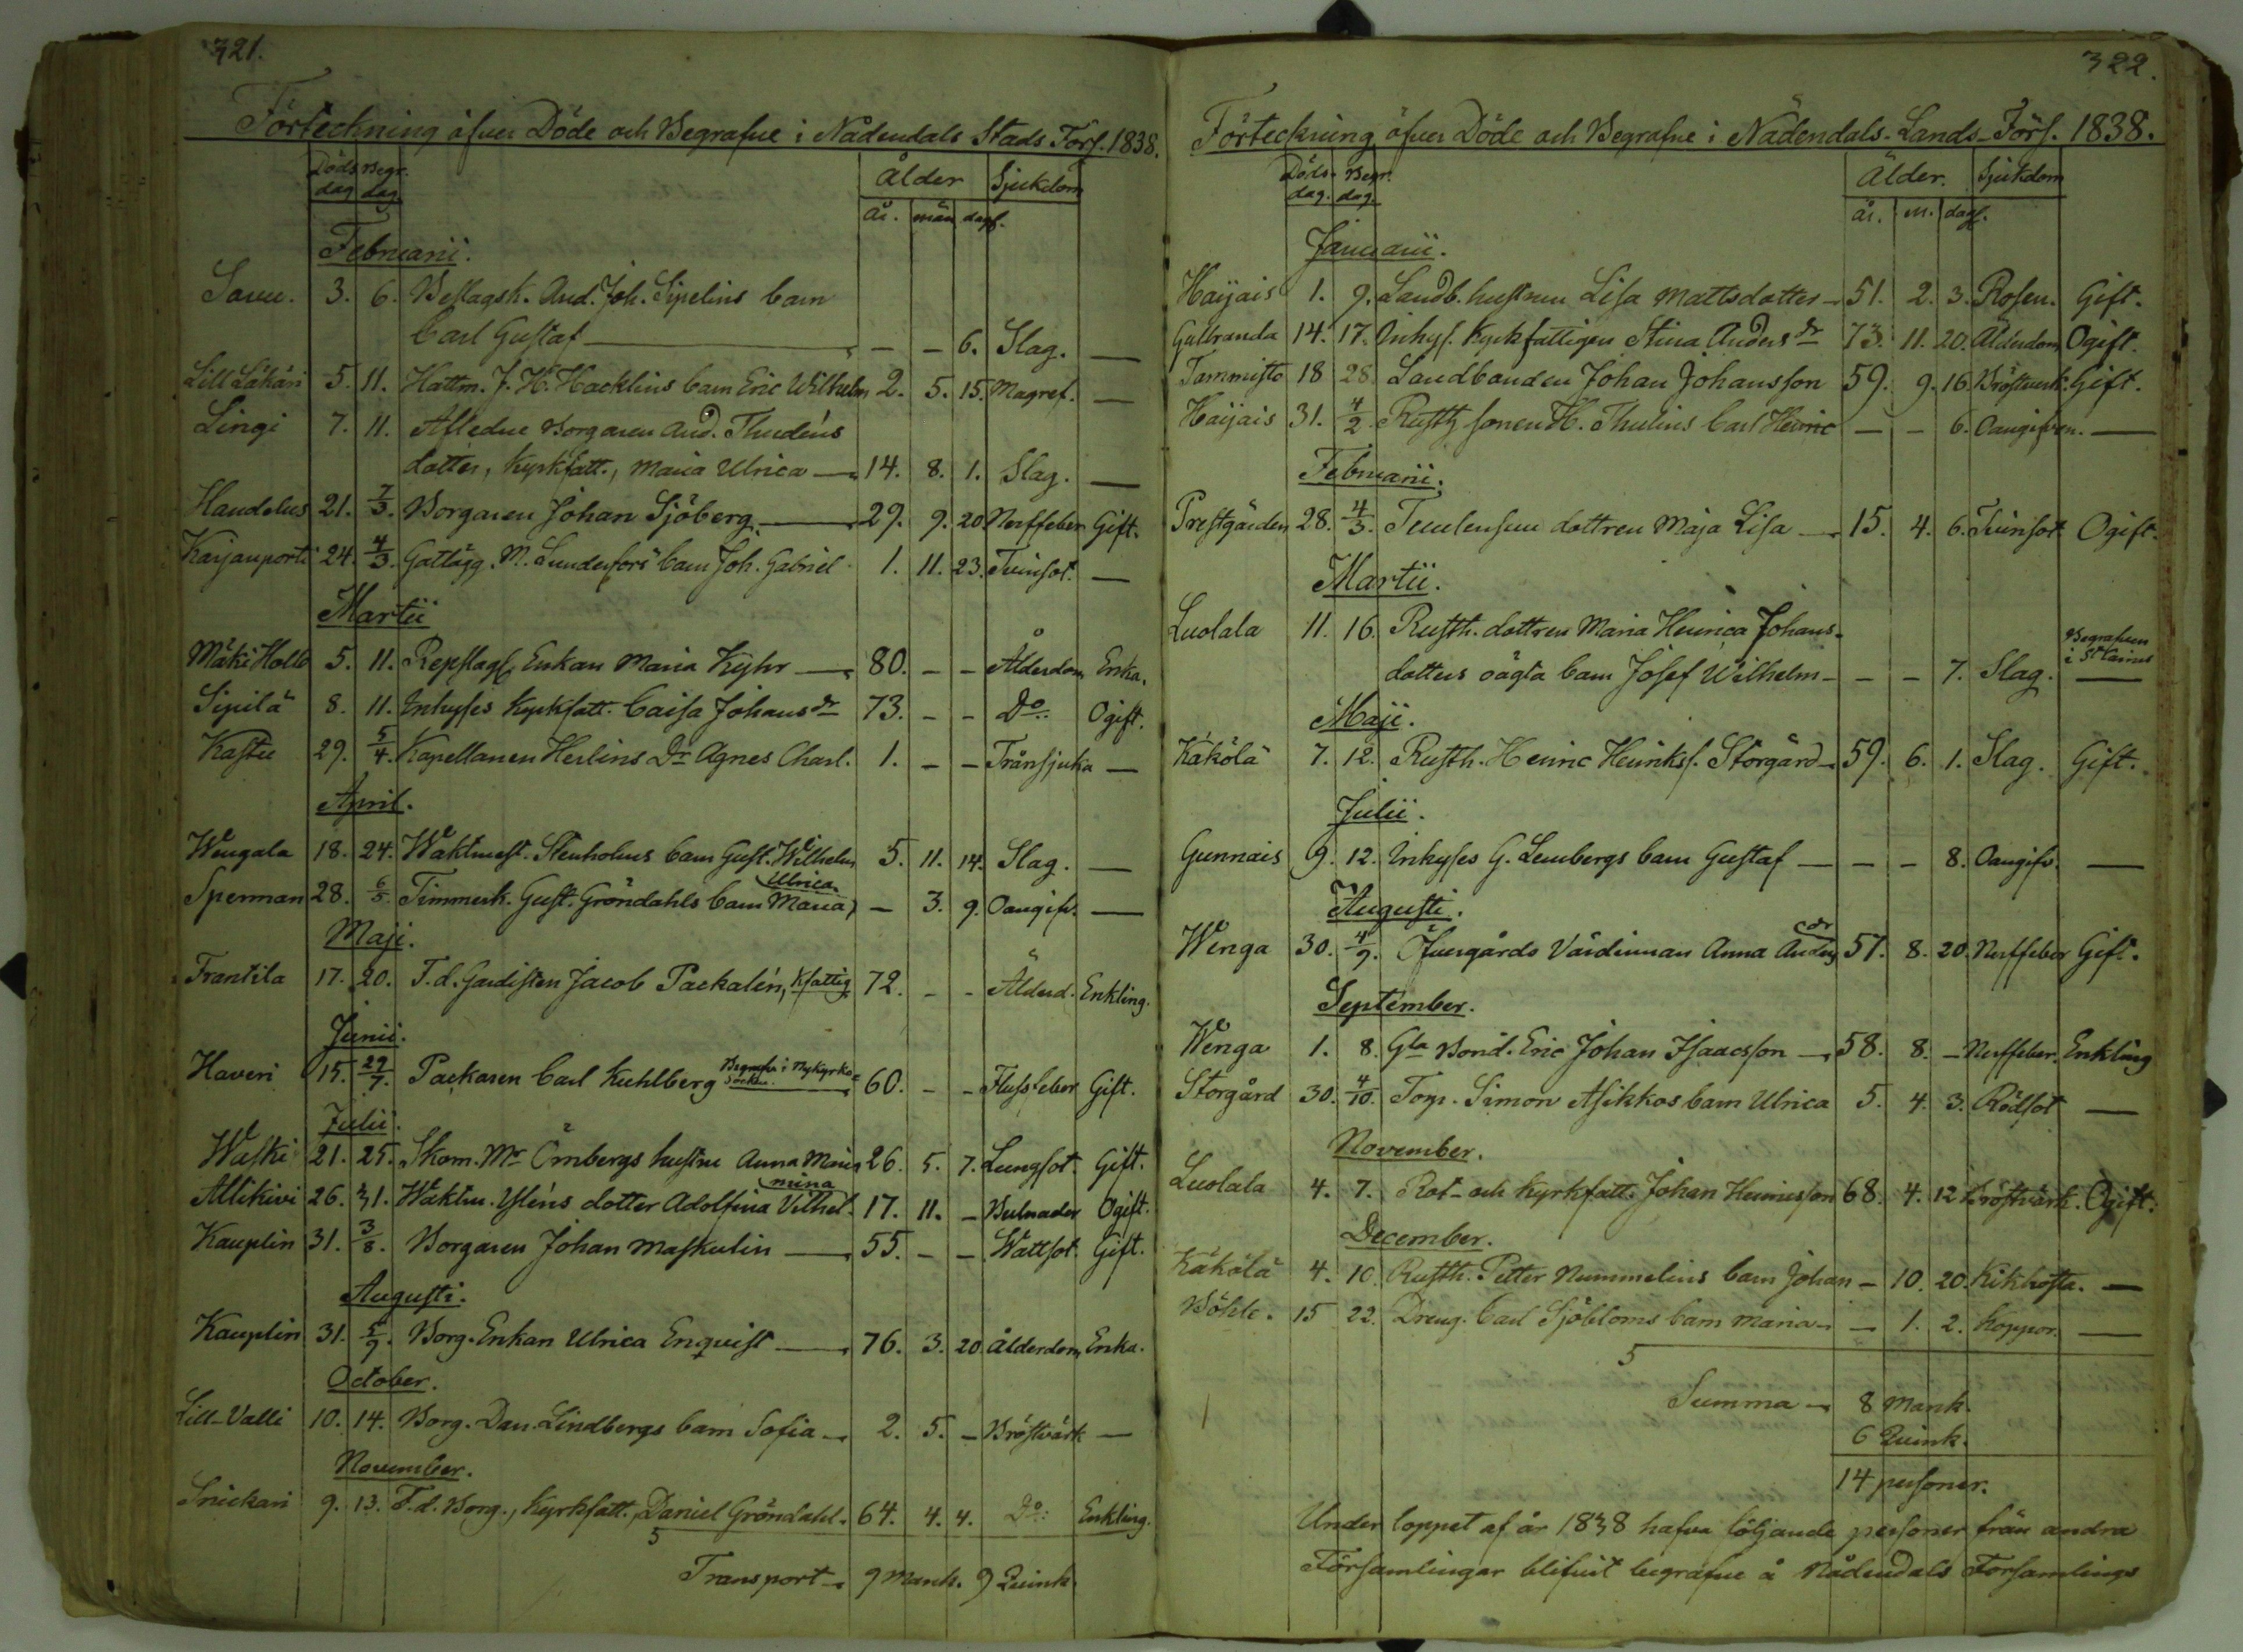 321.
Förteckning öfver Döde och Begrafne i Nådendals Stads Förs. 1838.
Döds dag Begr. dag Ålder Sjukdom
år. mån dag.
Februarii.
3. 6. Beslagsk. And. Joh. Sipelius barn
Carl Gustaf — — — 6. Slag. —
Lill Läkäri 5. 11. Hattm. J. H. Hacklins barn Eric Wilhelm 2. 5. 15. Magref. —
Lingi 7. 11. Afledne Borgaren And. Thudéns
dotter, Kyrkfatt., Maria Ulrica — 14. 8. 1. Slag. —
Handelus 21. 7/3. Borgaren Johan Sjöberg — 29. 9. 20 Nerffeber Gift.
Karjanportti 24. 4/3. M. Sunderfors barn Joh. Gabriel 1. 11. 23. Tvinsot. —
Martii
Mäki Holls 5. 11. Repslag. Enkan Maria Kyhr — 80. — — Ålderdom Enka.
Sipilä 8. 11. Inhyses Kyrkfatt. Caisa Johansdr 73. — — Do: Ogift.
Kastu 29. 5/4. Kapellanen Herlins Dr Agnes Charl. 1. — — Trånsjuka —
April.
Wengala 18. 24. Waktmest. Stenholms barn Gust. Wilhelm 5. 11. 14. Slag. —
Sperman 28. 6/5. Timmerk. Gust. Gröndahls barn Maria Ulrica — 3. 9. Oangifv. —
Maji.
Frantila 17. 20. F. d. Gardisten Jacob Packalén, Kfattig 72. — — Ålderd. Enkling.
Junii.
Haveri 15. 22/7. Packaren Carl Kuhlberg Begrafn i Nykyrko Socken. — 60. — — Flussfeber Gift.
Julii.
Waski 21. 25. Skom. Mr Örnbergs hustru Anna Maria 26. 5. 7. Lungsot. Gift.
Allikivi 26. 31. Waktm. Yléns dotter Adolfina Vilhelmina 17. 11. — Bulnader Ogift.
Kauplin 31. 3/8. Borgaren Johan Maskulin — 55. — — Wattsot. Gift.
Augusti.
Kauplin 31. 5/9. Borg. Enkan Ulrica Enqvist — 76. 3. 20 Ålderdom Enka.
October.
Lill-Valli 10. 14. Borg. Dan. Lindbergs barn Sofia — 2. 5. — Bröstvärk —
November.
Snickari 9. 13. F. d. Borg., Kyrkfatt., Daniel Gröndahl. 64. 4. 4. Do: Enkling.
5
Transport — 9 Mank. 9 Quink.
322.
Förteckning öfver Döde och Begrafne i Nådendals-Lands-Förs. 1838.
Döds-dag. Begr. dag Ålder. Sjukdom
år. m. dag.
Januarii.
Haijais 1. 9. Landb. hustrun Lisa Mattsdotter — 51. 2. 3. Rosen. Gift.
Gallranda 14. 17. Inhys. Kyrkfattigen Stina Andersdr 73. 11. 20. Ålderdom Ogift.
Tammisto 18 28. Landbonden Johan Johansson 59. 9. 16. Bröstverk Gift.
Haijais 31. 4/2. Rusth. sonen H. Thulins Carl Heinric — — 6. Oangifven. —
Februarii.
Prestgården 28. 4/3. dottren Maja Lisa — 15. 4. 6. Tvinsot Ogift.
Martii.
Luolala 11. 16. Rusth. dottren Maria Henrica Johans-
dotters oägta barn Josef Wilhelm — — — 7. Slag. Begrafven i St Carins —
Maji.
Käkölä 7. 12. Rusth. Henric Henrikss. Storgård — 59. 6. 1. Slag. Gift.
Julii.
Gunnais 9. 12. Inhyses G. Lembergs barn Gustaf — — — 8. Oangifv. —
Augusti.
Wenga 30. 4/9. Öfvergårds Värdinnan Anna Andersdr 57. 8. 20. Nerffeber Gift.
September.
Wenga 1. 8. Gla Bond. Eric Johan Isaacsson — 58. 8. — Nerffeber. Enkling
Storgård 30. 4/10. Torp. Simon Asikkos barn Ulrica 5. 4. 3. Rödsot —
November.
Luolala 4. 7. Rot- och Kyrkfatt. Johan Henricsson 68. 4. 12 Bröstvärk. Ogift.
December.
Käkölä 4. 10. Rusth. Petter Nummelins barn Johan — 10. 20. Kikhosta. —
Böhle. 15 22. Dreng. Carl Sjöbloms barn Maria — — 1. 2. Koppor. —
5
Summa — 8 Mank.
6 Quink.
14 personer.
Under loppet af år 1838 hafva följande personer från andra
Församlingar blifvit begrafne å Nådendals Församlings